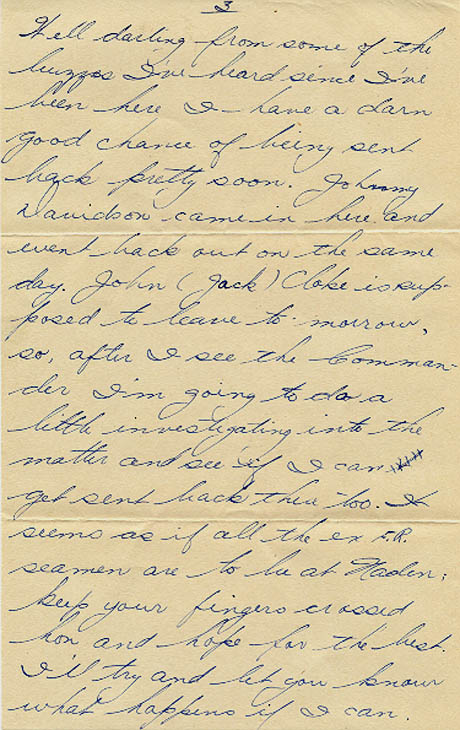 3
Well darling from some of the
buzzes I've heard since I've
been here I have a darn
good chance of being sent
back pretty soon. Johnny
Davidson came in here and
went back out on the same
day. John (Jack) Cloke is sup-
posed to leave to-morrow,
so, after I see the Comman-
der I'm going to do a
little investigating into the
matter and see if I can
get sent back there too. It
seems as if all the ex F.R.
seamen are to be at Naden;
keep your fingers crossed
hon and hope for the best.
I'll try and let you know
what happens if I can.